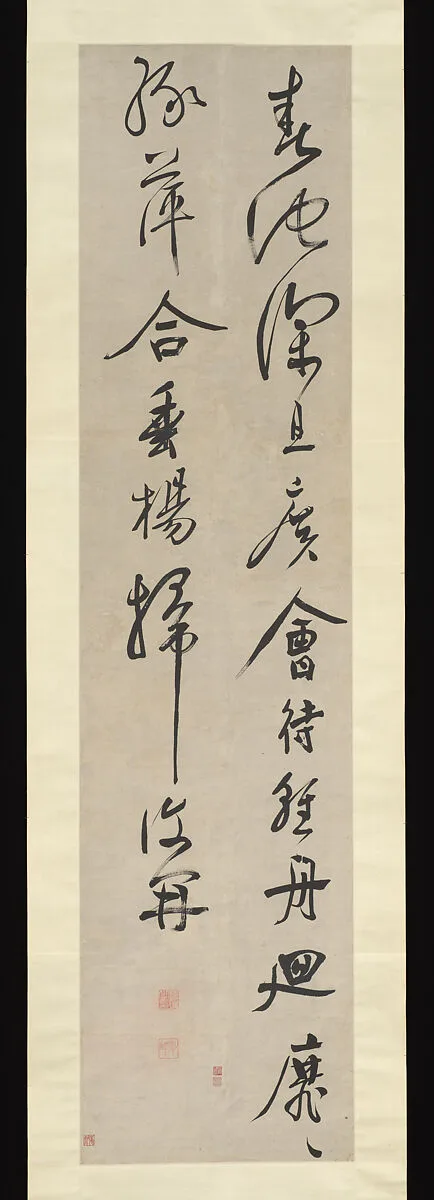 春池深且廣會待輕舟迴靡々
綠萍合垂楊掃復開